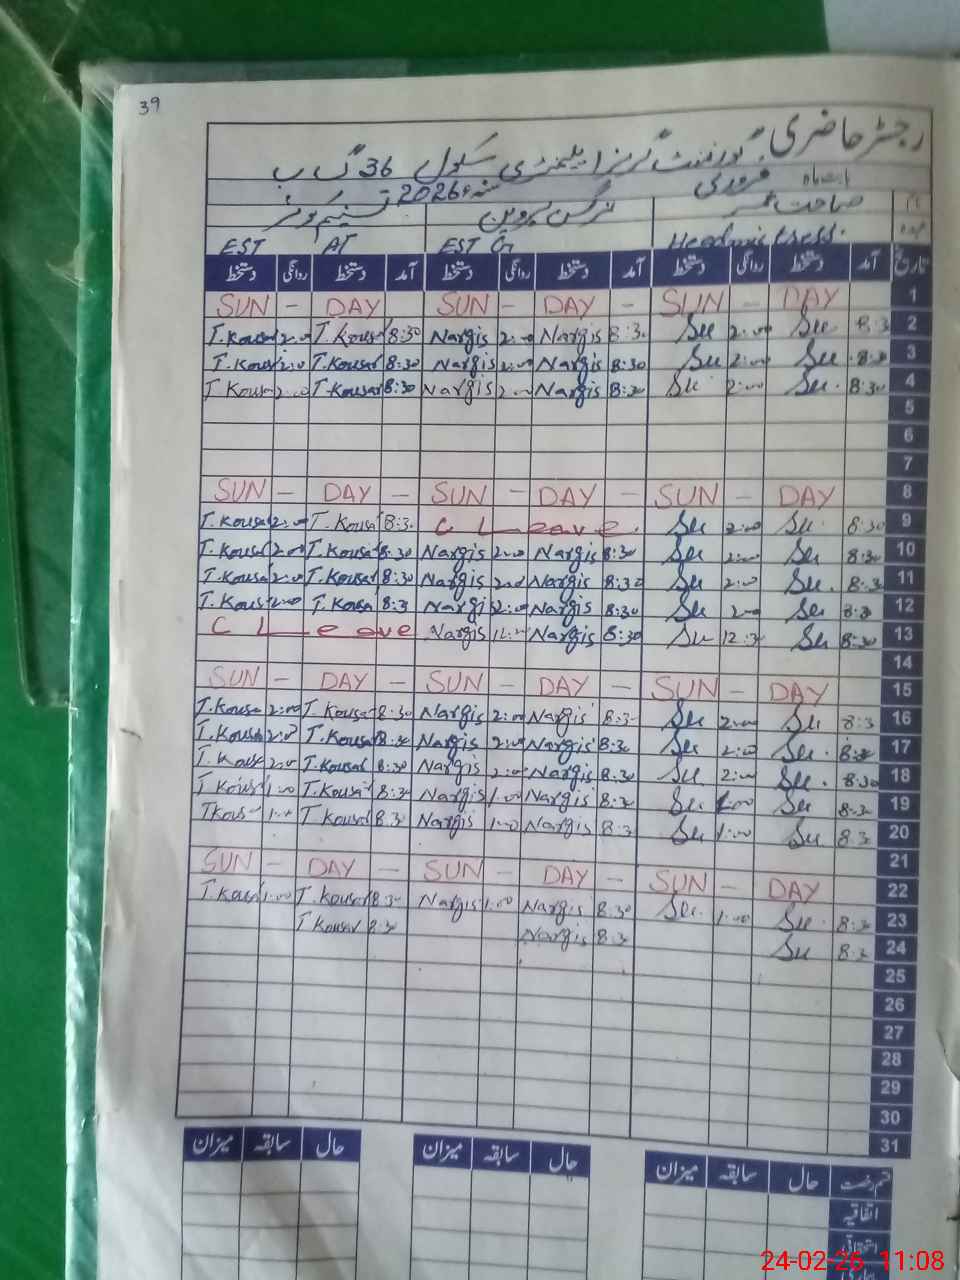 39
رجسٹر حاضری گورنمنٹ گرلز ایلیمنٹری سکول 36 گ ب
بابت ماہ فروری سنہ 2026ء
نام صباحت نرگس پروین تسنیم کوثر
عہدہ Headmistress. EST G EST AT
تاریخ آمد دستخط روانگی دستخط آمد دستخط روانگی دستخط آمد دستخط روانگی دستخط
SUN - DAY SUN - DAY - SUN - DAY 1
T.Kousar 2:00 T.Kousar 8:30 Nargis 2:00 Nargis 8:30 2:00 8:3 2
T.Kousar 2:00 T.Kousar 8:30 Nargis 2:00 Nargis 8:30 2:00 8:30 3
T Kousar 2:00 T.Kousar 8:30 Nargis 2:00 Nargis 8:30 2:00 8:30 4
5
6
7
SUN - DAY - SUN - DAY - SUN - DAY 8
T.Kousar 2:00 T.Kousar 8:30 C Leave. 2:00 8:30 9
T.Kousar 2:00 T.Kousar 8:30 Nargis 2:00 Nargis 8:30 2:00 8:30 10
T.Kousar 2:00 T.Kousar 8:30 Nargis 2:00 Nargis 8:30 2:00 8:30 11
T.Kousar 2:00 T.Kousar 8:3 Nargis 2:00 Nargis 8:30 2:00 8:30 12
C Leave Nargis Nargis 8:30 12:3 8:30 13
14
SUN - DAY - SUN - DAY - SUN - DAY 15
T.Kousar 2:00 T Kousar 8:30 Nargis 2:00 Nargis 8:3 2:00 8:3 16
T.Kousar 2:00 T.Kousar 8:30 Nargis 2:00 Nargis 8:30 2:00 8:30 17
T.Kousar 2:00 T.Kousar 8:30 Nargis 2:00 Nargis 8:30 2:00 8:30 18
T Kousar 1:00 T.Kousar 8:30 Nargis 1:00 Nargis 8:3 1:00 8:30 19
TKousar 1:00 T Kousar 8:30 Nargis 1:00 Nargis 8:3 1:00 8:3 20
21
SUN - DAY - SUN - DAY - SUN - DAY 22
T.Kousar 1:00 T.Kousar 8:30 Nargis 1:00 Nargis 8:30 1:00 8:3 23
T Kousar 8:30 Nargis 8:3 8:3 24
25
26
27
28
29
30
31
قسم رخصت حال سابقہ میزان حال سابقہ میزان حال سابقہ میزان
اتفاقیہ
استحقاقی
24-02-26 11:08